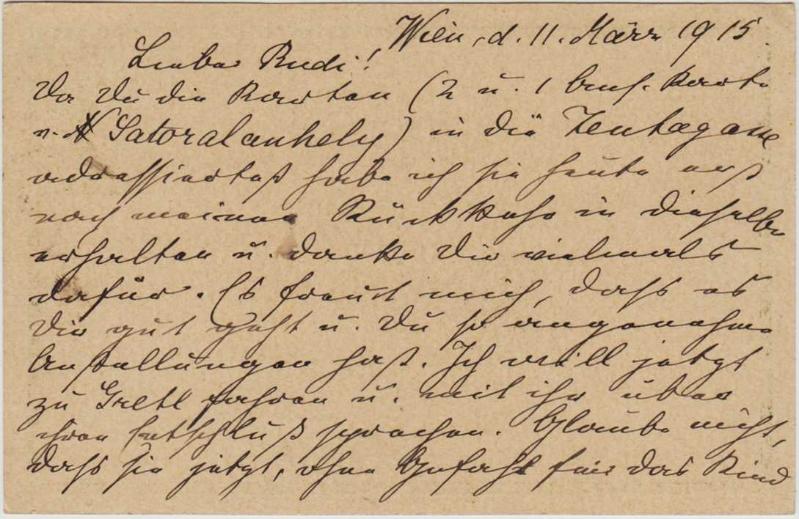 Wien, d. 11. März 1915.
Lieber Rudi!
Da Du die Karten (2 u. 1 Karte
v. Satoralanhely) in die Zentagasse
adressiertest habe ich sie heute erst
nach meiner Rückkehr in dieselbe
erhalten u. danke Dir vielmals
dafür. Es freut mich, dass es
Dir gut geht u. Du so angenehme
hast. Ich will jetzt
zu Gretl fahren u. mit ihr über
ihren Entschluß sprechen. Glaube nicht,
dass sie jetzt, ohne Gefahr für das Kind